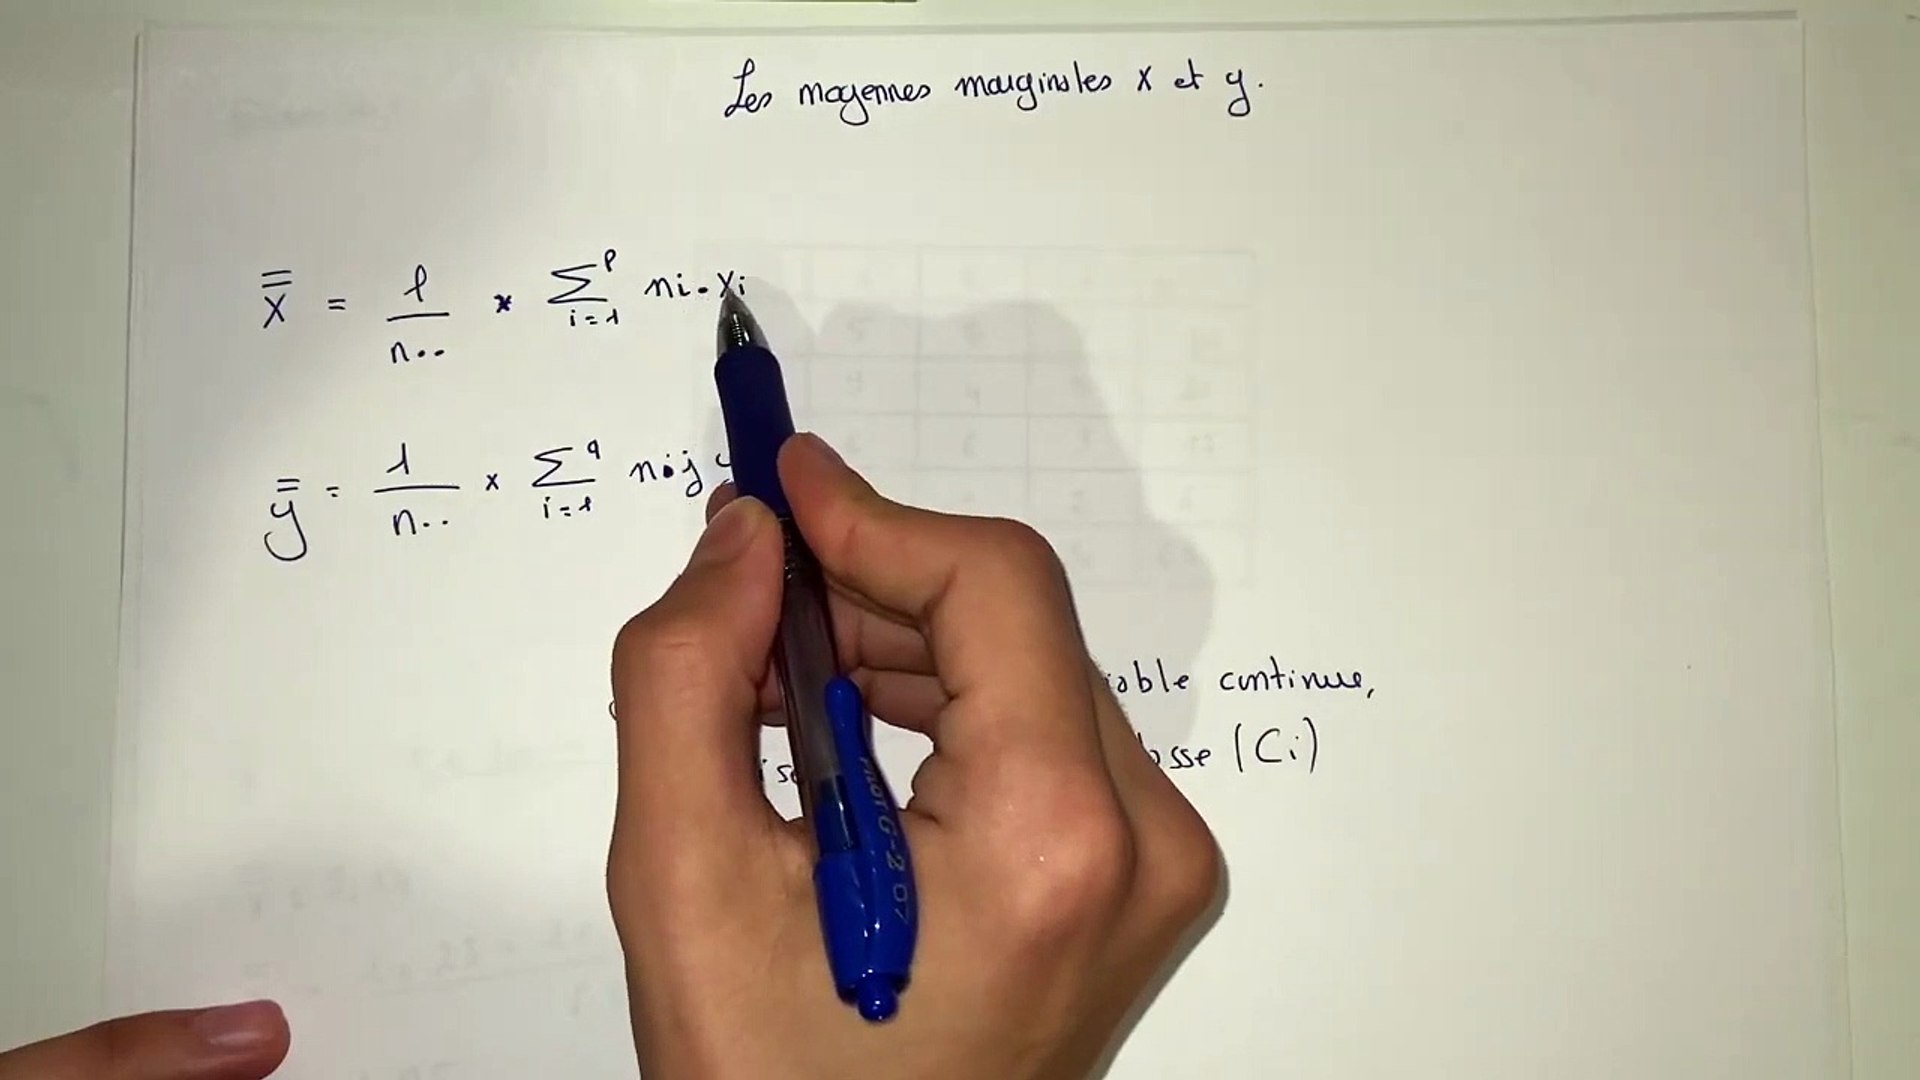 Les moyennes marginales x et y.
x̿ = 1/n.. * Σ^p i=1 ni.xi
y̿ = 1/n.. x Σ^q i=1 n.j y
iable continue,
asse (Ci)
PILOT G-2 07